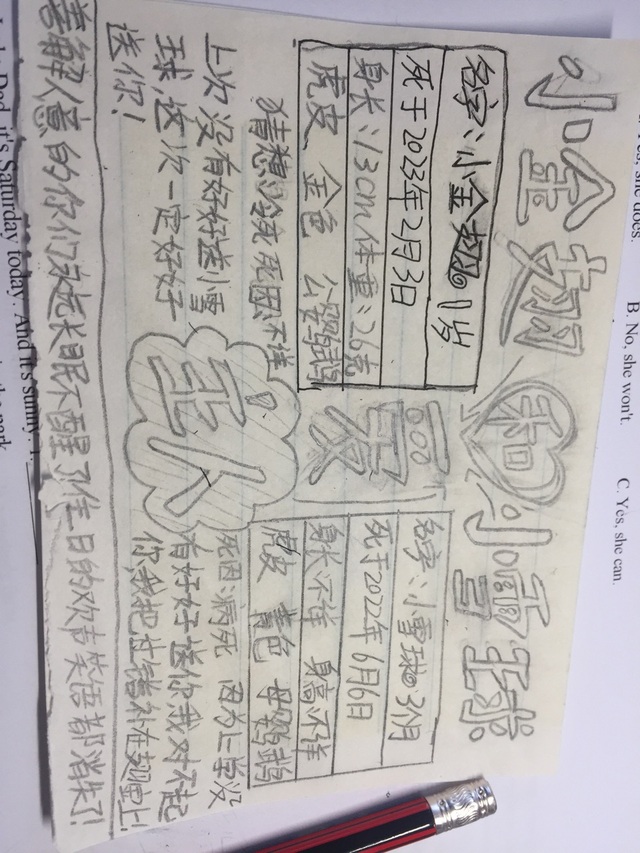 小金翅和小雪球
名字:小金翅 1岁
死于2023年2月3日
身长:13cm体重:26克
虎皮、金色 公鹦鹉
猜想:冷死 死因不详
上次没有好好送小雪
球,这次一定好好
送你!
名字:小雪球 3个月
死于2022年6月6日
身长不详 身高不详
虎皮 青色 母鹦鹉
死因:病死 因为上学没
有好好送你我对不起
你,我把过错补在 上!
善解人意的你们永远长眠不醒了往日的欢声笑语都消失了!
she does.
B. No, she won't.
C. Yes, she can.
Dad, it's Saturday today. And it's sunny.